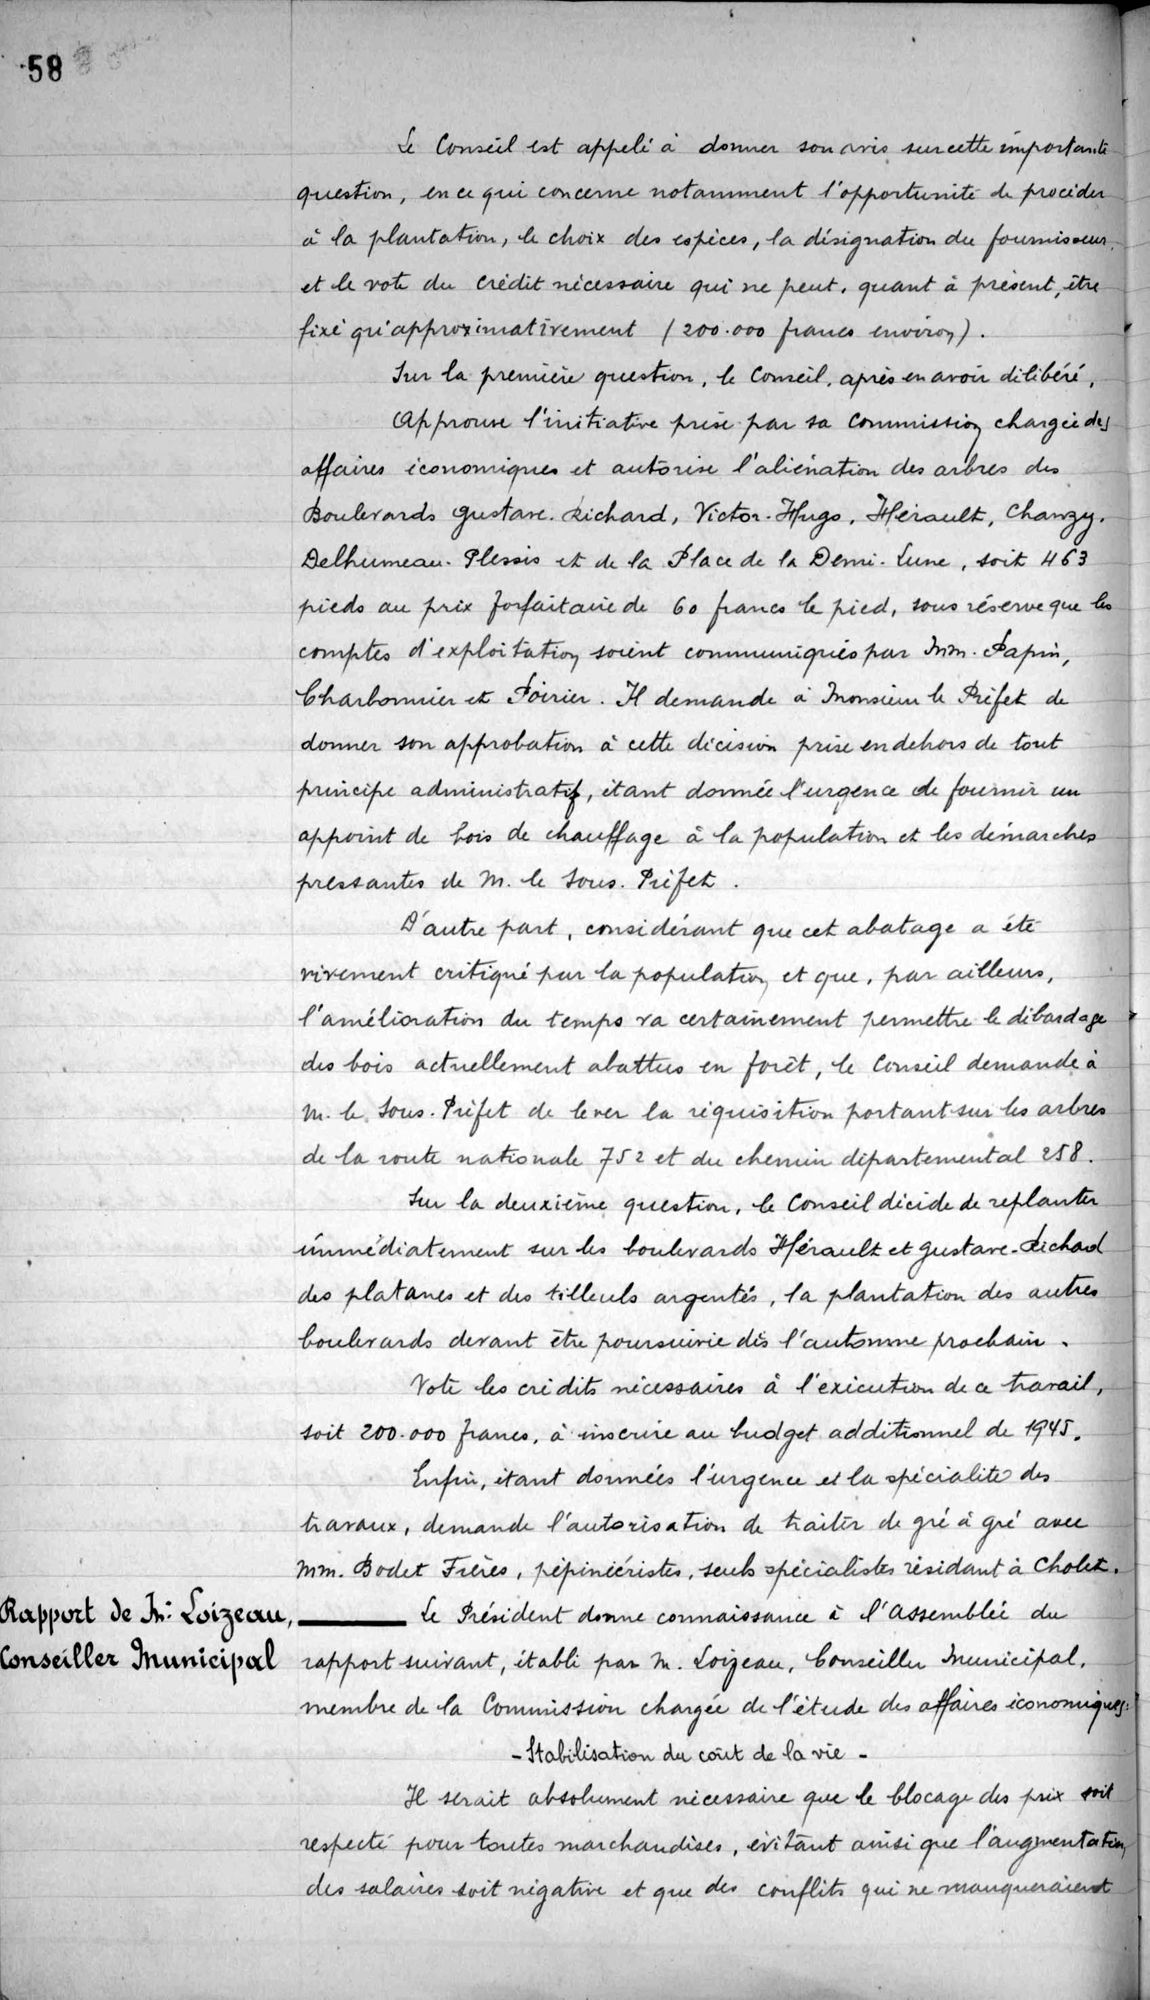 58
Le Conseil est appelé à donner son avis sur cette importante
question, en ce qui concerne notamment l'opportunité de procéder
à la plantation, le choix des espèces, la désignation du fournisseur,
et le vote du crédit nécessaire qui ne peut, quant à présent, être
fixé qu'approximativement (200.000 francs environ).
Sur la première question, le Conseil, après en avoir délibéré,
Approuve l'initiative prise par sa Commission chargée des
affaires économiques et autorise l'aliénation des arbres des
Boulevards Gustave-Richard, Victor-Hugo, Hérault, Chanzy,
Delhumeau-Plessis et de la Place de la Demi-Lune, soit 463
pieds au prix forfaitaire de 60 francs le pied, sous réserve que les
comptes d'exploitation soient communiqués par MM. Papin,
Charbonnier et Poirier. Il demande à Monsieur le Préfet de
donner son approbation à cette décision prise en dehors de tout
principe administratif, étant donnée l'urgence de fournir un
appoint de bois de chauffage à la population et les démarches
pressantes de M. le Sous-Préfet.
D'autre part, considérant que cet abatage a été
vivement critiqué par la population et que, par ailleurs,
l'amélioration du temps va certainement permettre le débardage
des bois actuellement abattus en forêt, le Conseil demande à
M. le Sous-Préfet de lever la réquisition portant sur les arbres
de la route nationale 752 et du chemin départemental 258.
Sur la deuxième question, le Conseil décide de replanter
immédiatement sur les boulevards Hérault et Gustave-Richard
des platanes et des tilleuls argentés, la plantation des autres
boulevards devant être poursuivie dès l'automne prochain.
Vote les crédits nécessaires à l'exécution de ce travail,
soit 200.000 francs, à inscrire au budget additionnel de 1945.
Enfin, étant données l'urgence et la spécialité des
travaux, demande l'autorisation de traiter de gré à gré avec
MM. Bodet Frères, pépiniéristes, seuls spécialistes résidant à Cholet.
Rapport de M. Loizeau,
Conseiller Municipal
Le Président donne connaissance à l'Assemblée du
rapport suivant, établi par M. Loizeau, Conseiller Municipal,
membre de la Commission chargée de l'étude des affaires économiques:
- Stabilisation du coût de la vie -
Il serait absolument nécessaire que le blocage des prix soit
respecté pour toutes marchandises, évitant ainsi que l'augmentation
des salaires soit négative et que des conflits qui ne manqueraient